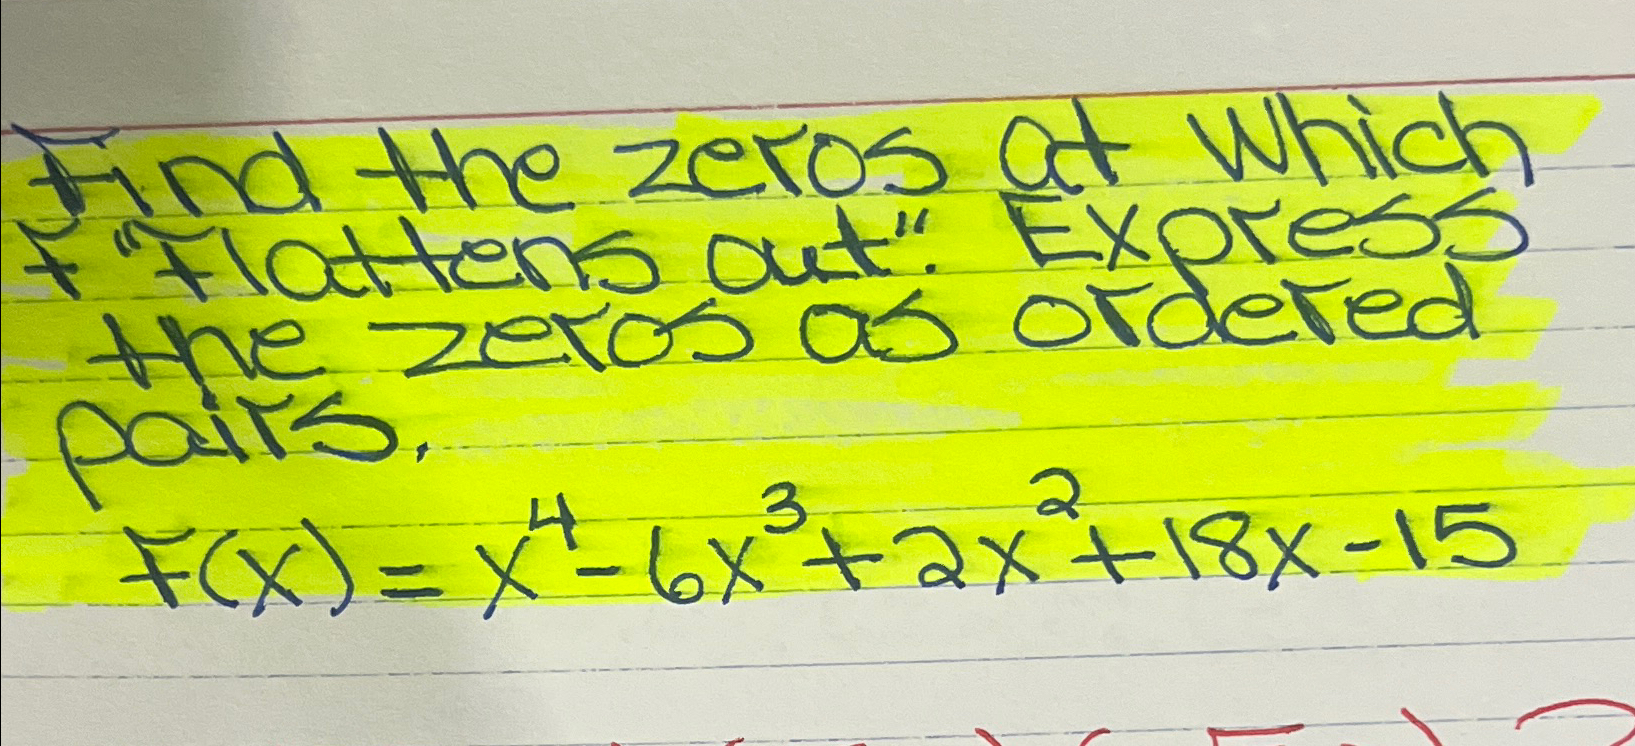 Find the zeros at which
F "Flattens out". Express
the zeros as ordered
pairs.
F(x) = x⁴ - 6x³ + 2x² + 18x - 15